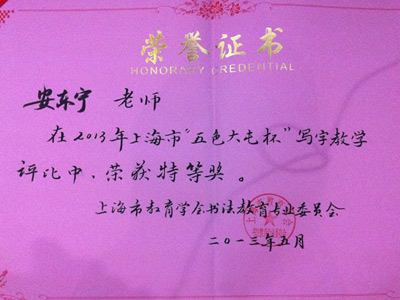 荣誉证书
HONORARY CREDENTIAL
安东宁 老师
在2013年上海市“五色大屯杯”写字教学
评比中,荣获特等奖。
上海市教育学会书法教育专业委员会
二〇一三年五月